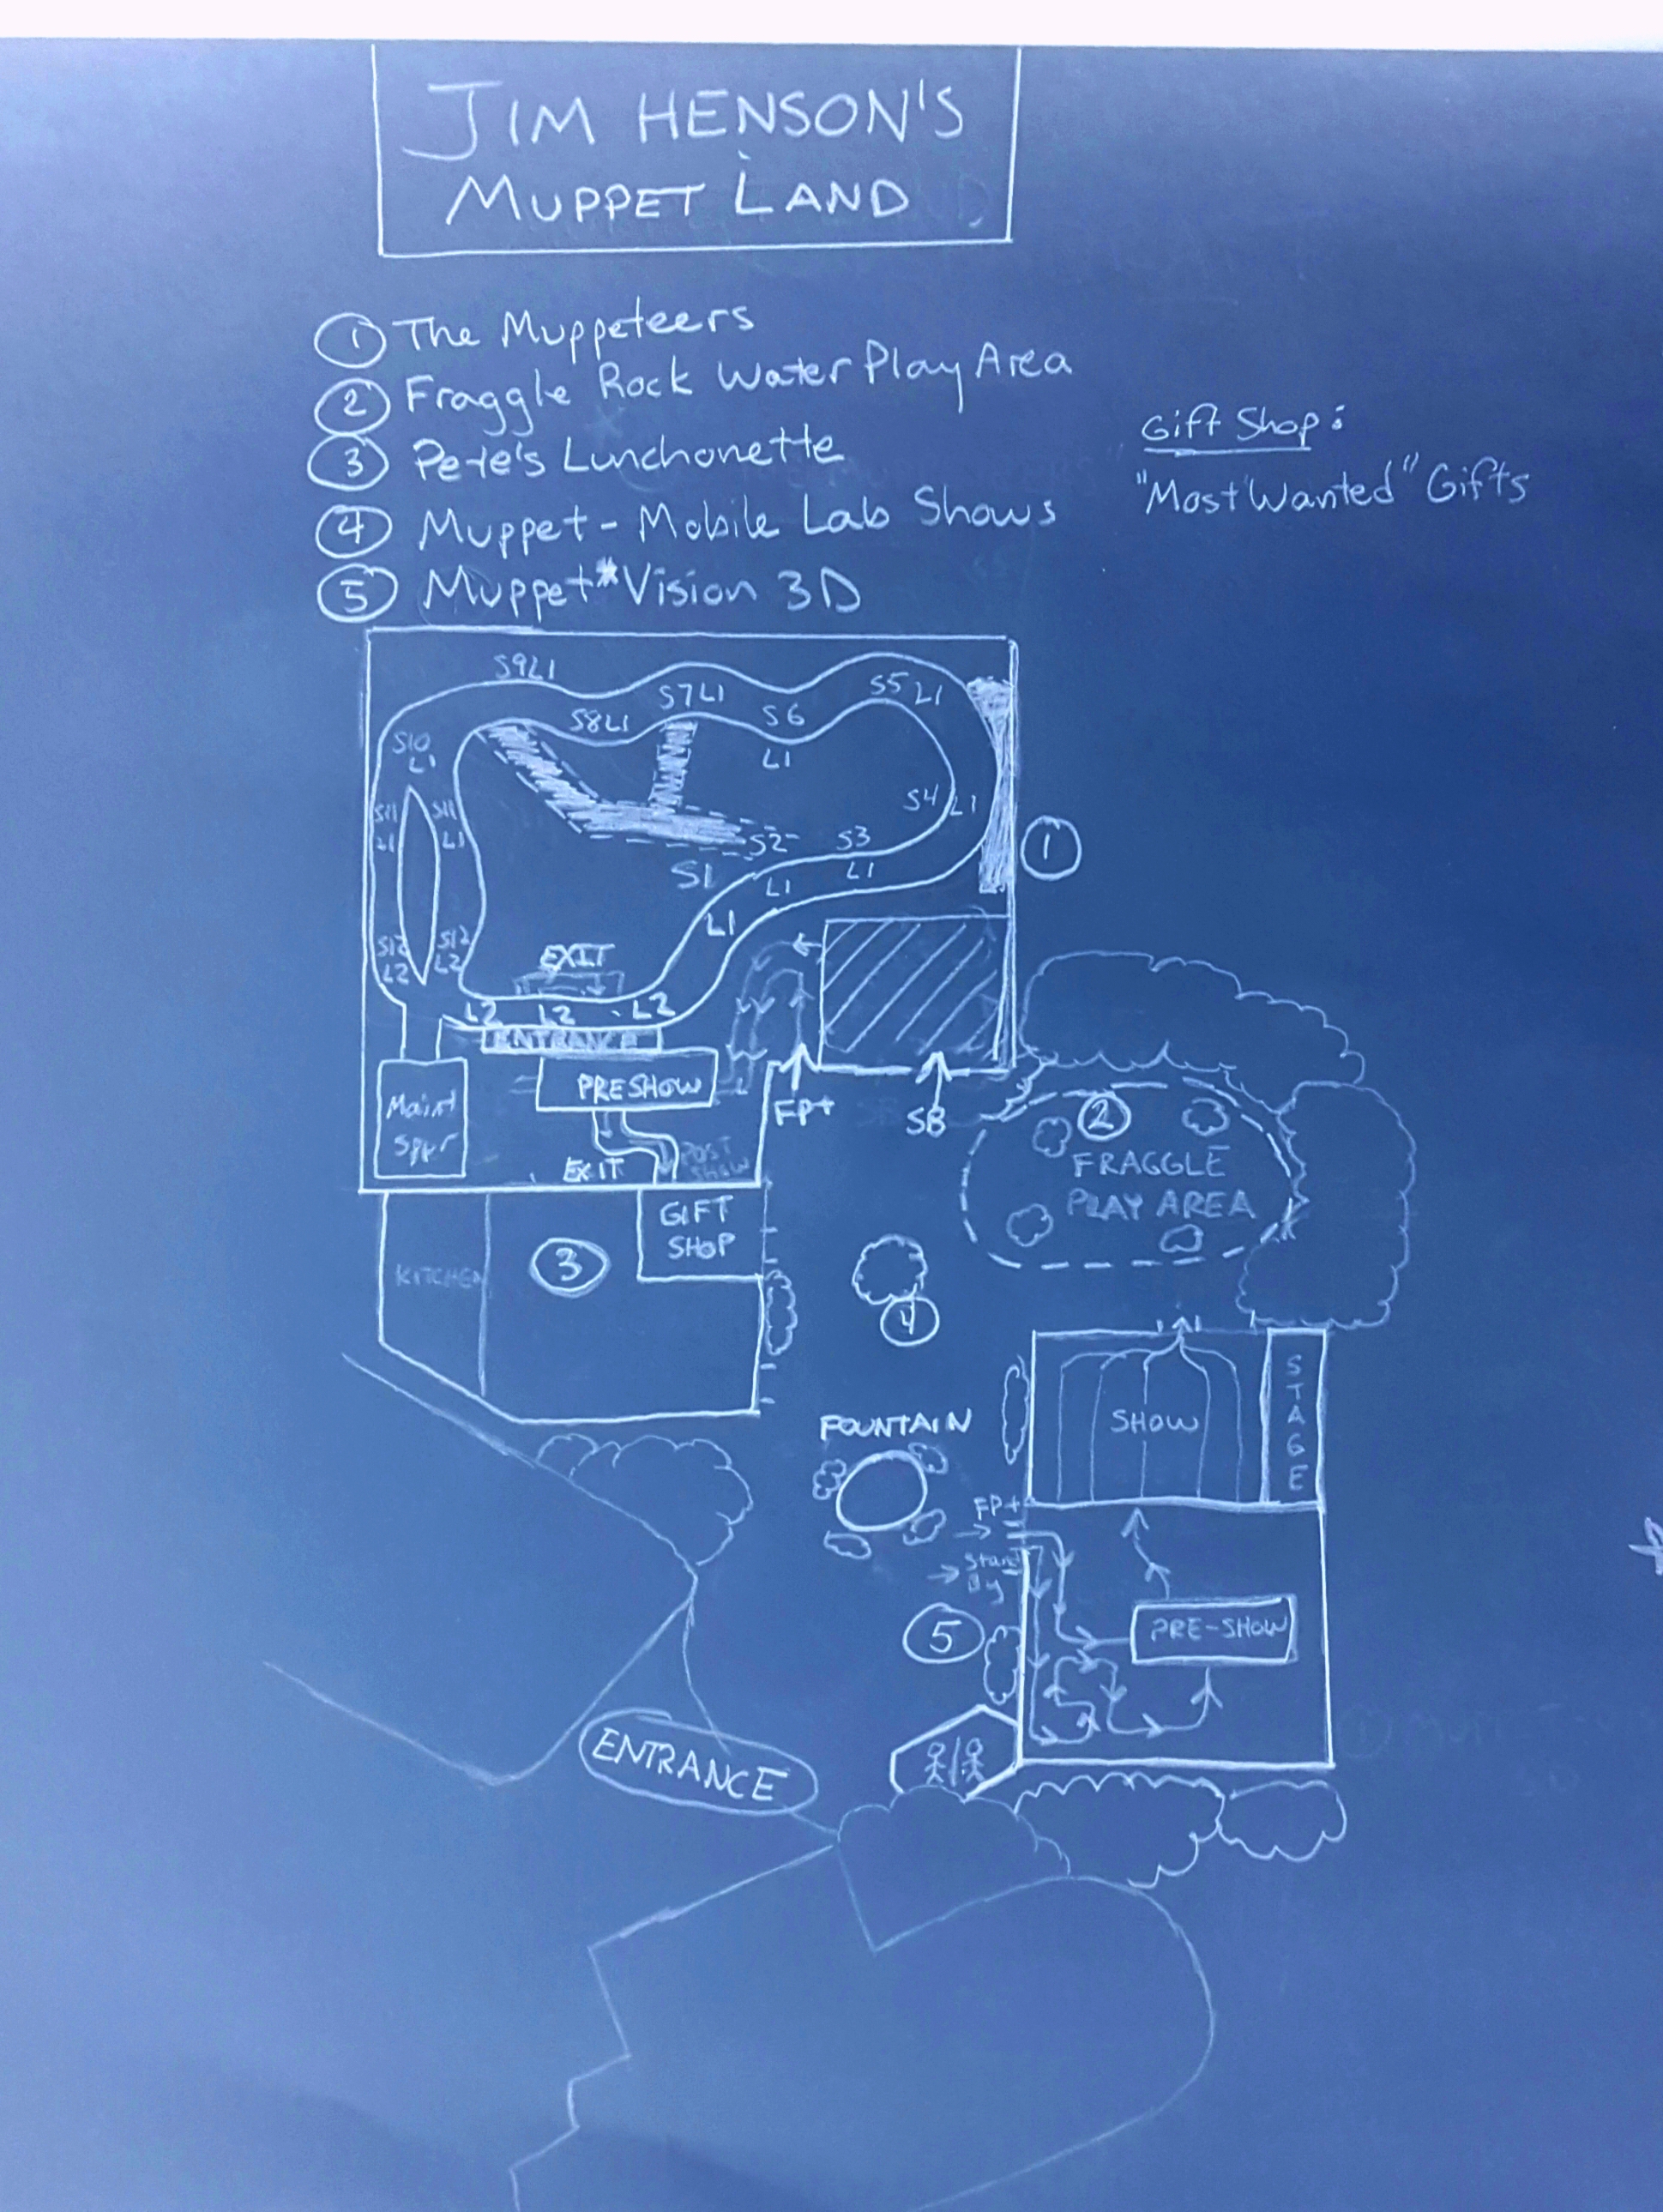 JIM HENSON'S
MUPPET LAND
1 The Muppeteers
2 Fraggle Rock Water Play Area
3 Pete's Lunchonette
4 Muppet-Mobile Lab Shows
5 Muppet*Vision 3D
Gift Shop:
"Most Wanted" Gifts
S9L1
S7L1
S5 L1
S8L1
S6
L1
S10
L1
S4 L1
S11
L1
S11
L1
S2
S3
S1
L1
L1
L1
1
S12
L2
S12
L2
EXIT
L2 L2 L2
ENTRANCE
PRESHOW
Maint
Spur
FP+
SB
POST
SHOW
EXIT
2
FRAGGLE
PLAY AREA
GIFT
SHOP
KITCHEN
3
4
SHOW
STAGE
FOUNTAIN
FP+
Stand
By
5
PRE-SHOW
ENTRANCE